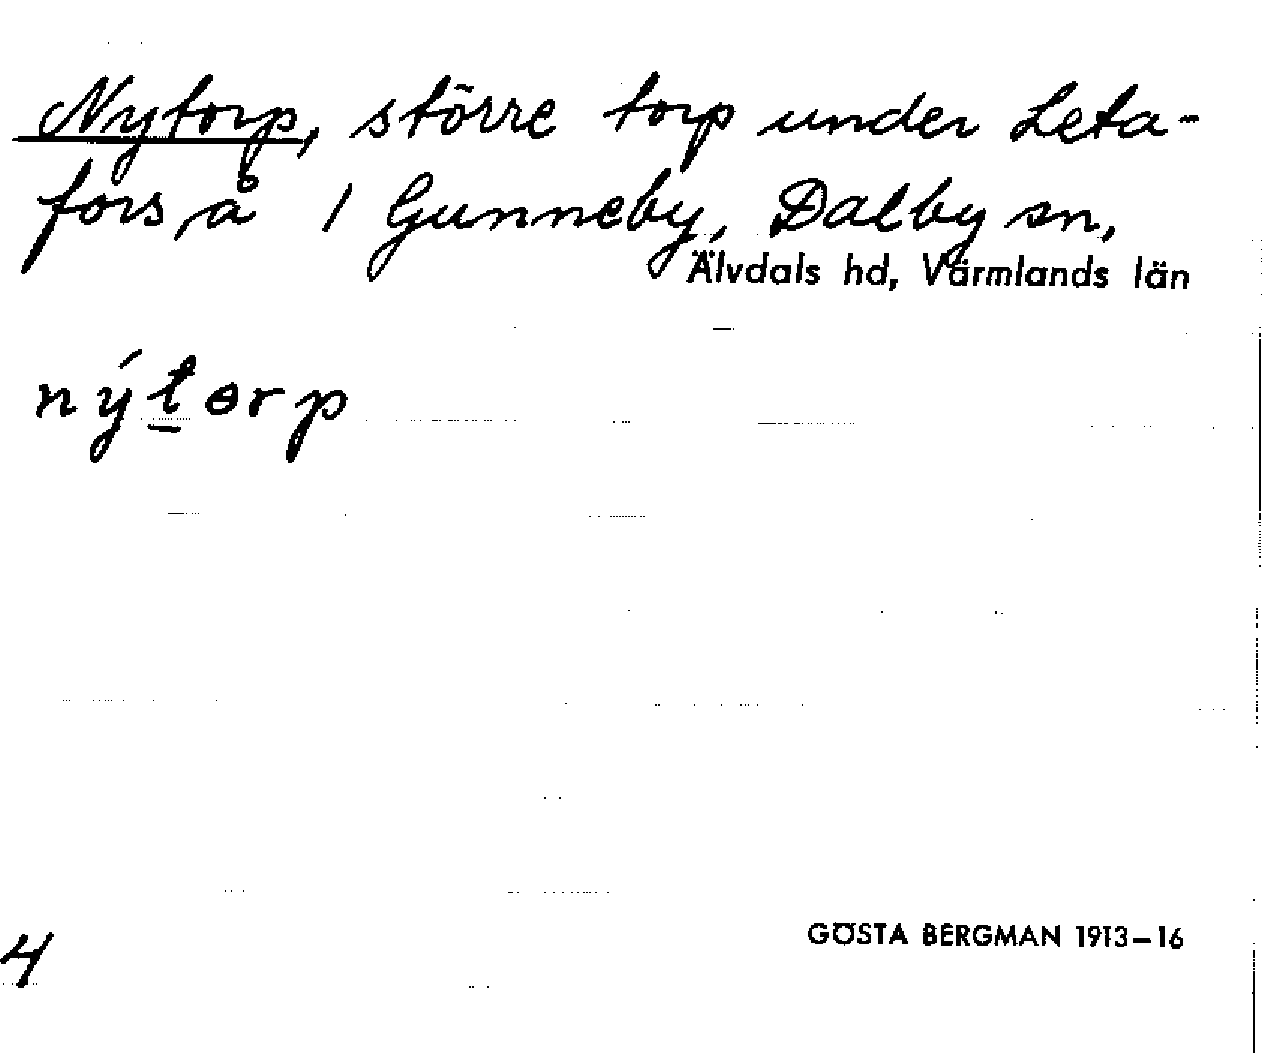 Nytorp, större torp under Leta-
fors å 1 Gunneby, Dalby sn,
Älvdals hd, Värmlands län
nýt̲ɵrp
4
GÖSTA BERGMAN 1913–16